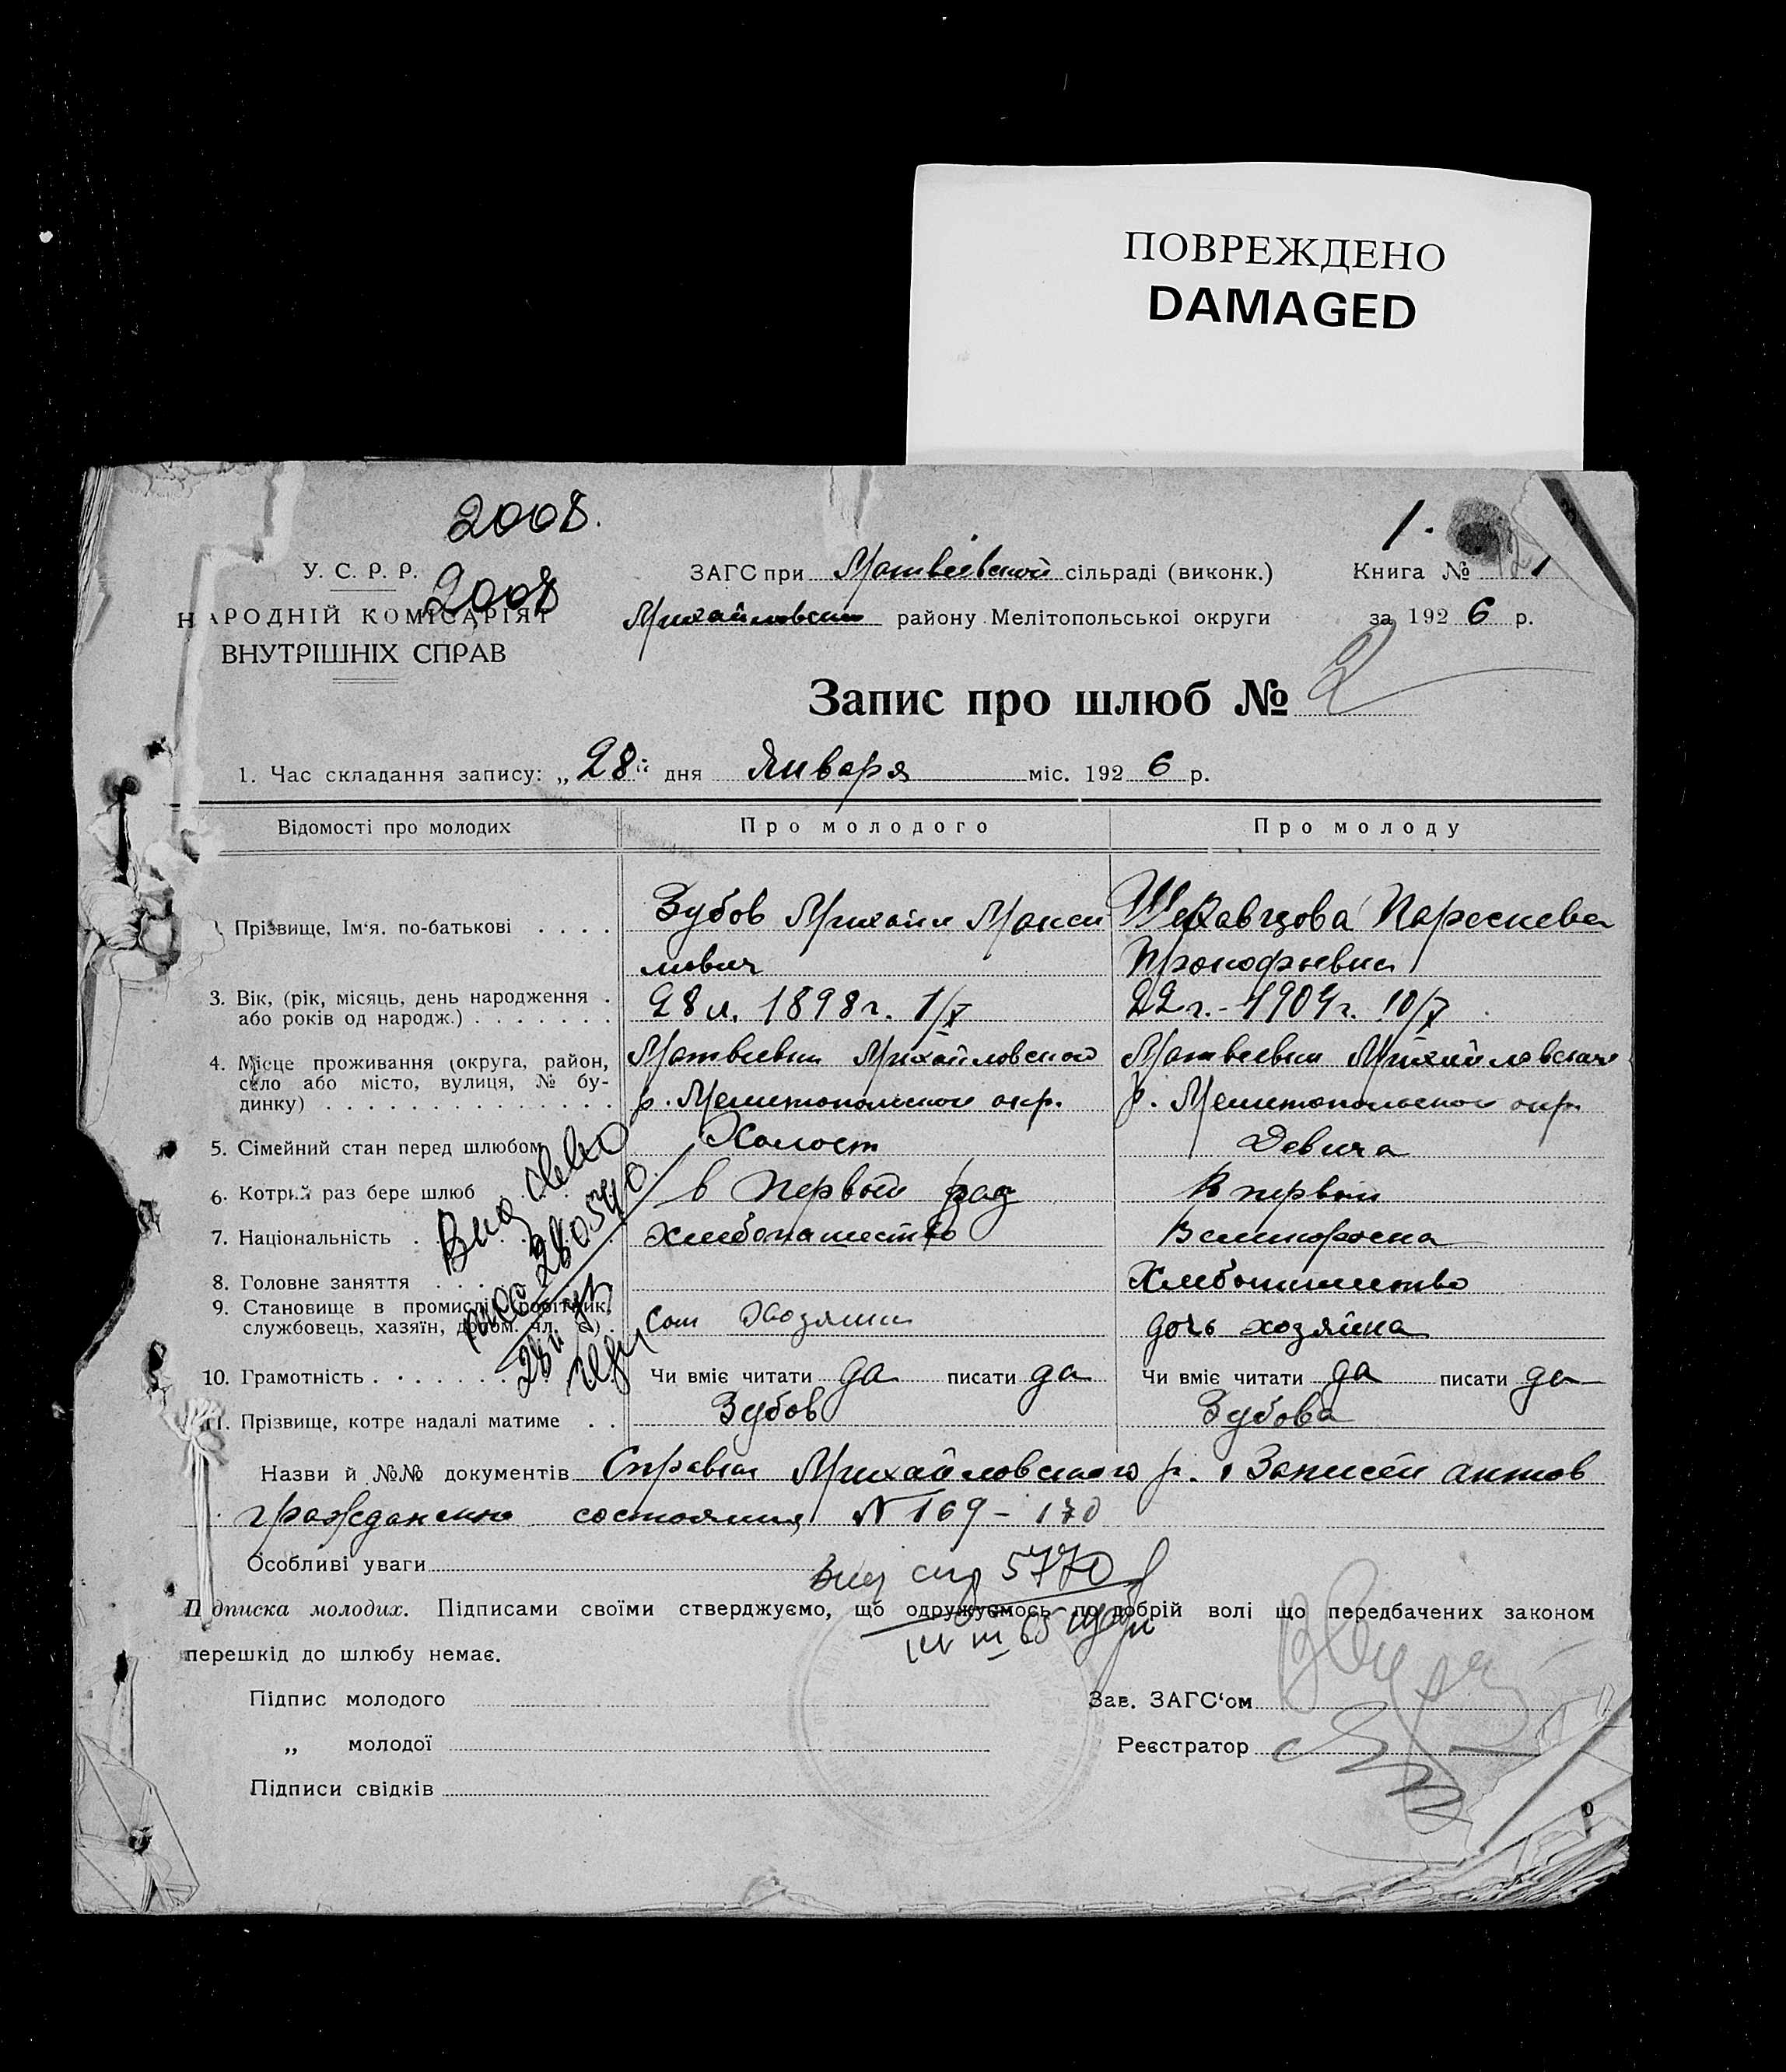 ПОВРЕЖДЕНО
DAMAGED
2008.
1.
У. С. Р. Р.
2008
ЗАГС при Матвіевской сільраді (виконк.)
Книга № 1
НАРОДНІЙ КОМІСАРІЯТ
Михайловского району Мелітопольської округи
за 1926 р.
ВНУТРІШНІХ СПРАВ
Запис про шлюб № 2
1. Час складання запису: „28" дня Января міс. 1926 р.
Відомості про молодих
Про молодого
Про молоду
Прізвище, Ім'я. по-батькові . . . .
Зубов Михаил Макси
мович
Параскева
Прокофьевна
3. Вік, (рік, місяць, день народження .
або років од народж.) . . . . . . .
28 л. 1898 г. 1/X
22 г. - 1904 г. 10/X
4. Місце проживання (округа, район,
село або місто, вулиця, № бу-
динку) . . . . . . . . . . . . . .
Матвеевки Михайловской
р. Мелитопольской окр.
Матвеевки Михайловского
р. Мелитопольской окр.
5. Сімейний стан перед шлюбом
Холост
Девица
6. Котрий раз бере шлюб
в Первый раз
В первый
7. Національність .
Хлебопашество
Великоросска
8. Головне заняття . . . .
Хлебопашество
9. Становище в промислі робітник,
службовець, хазяїн, допом. чл. с.) .
Сам Хозяин
дочь хозяина
10. Грамотність . . . . . . .
Чи вміє читати да писати да
Чи вміє читати да писати да
11. Прізвище, котре надалі матиме . .
Зубов
Зубова
Назви й №№ документів Справка Михайловского р. Записи актов
гражданского состояния N 169 - 170
Особливі уваги
5770
Підписка молодих. Підписами своїми стверджуємо, що одружуємось по добрій волі що передбачених законом
перешкід до шлюбу немає.
Підпис молодого
Зав. ЗАГС'ом
„ молодої
Реєстратор
Підписи свідків